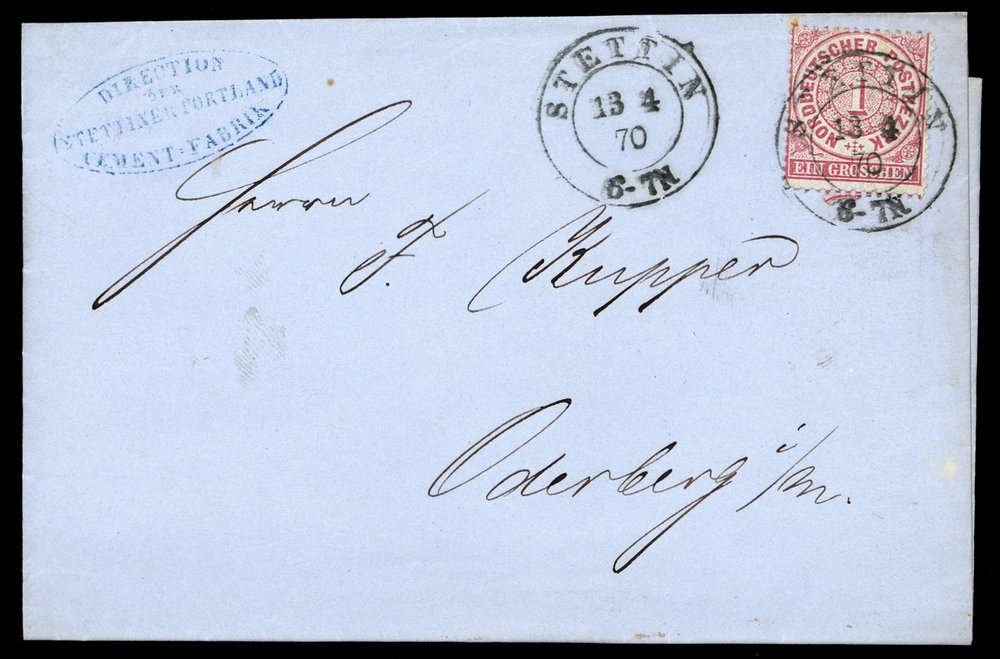 DIRECTION
DER
STETTINER PORTLAND
CEMENT-FABRIK
STETTIN
13 4
70
6-7N
NORDDEUTSCHER POSTBEZIRK
1
EIN GROSCHEN
STETTIN
13 4
70
6-7N
Herrn
F. Kupper
Oderberg i/m.